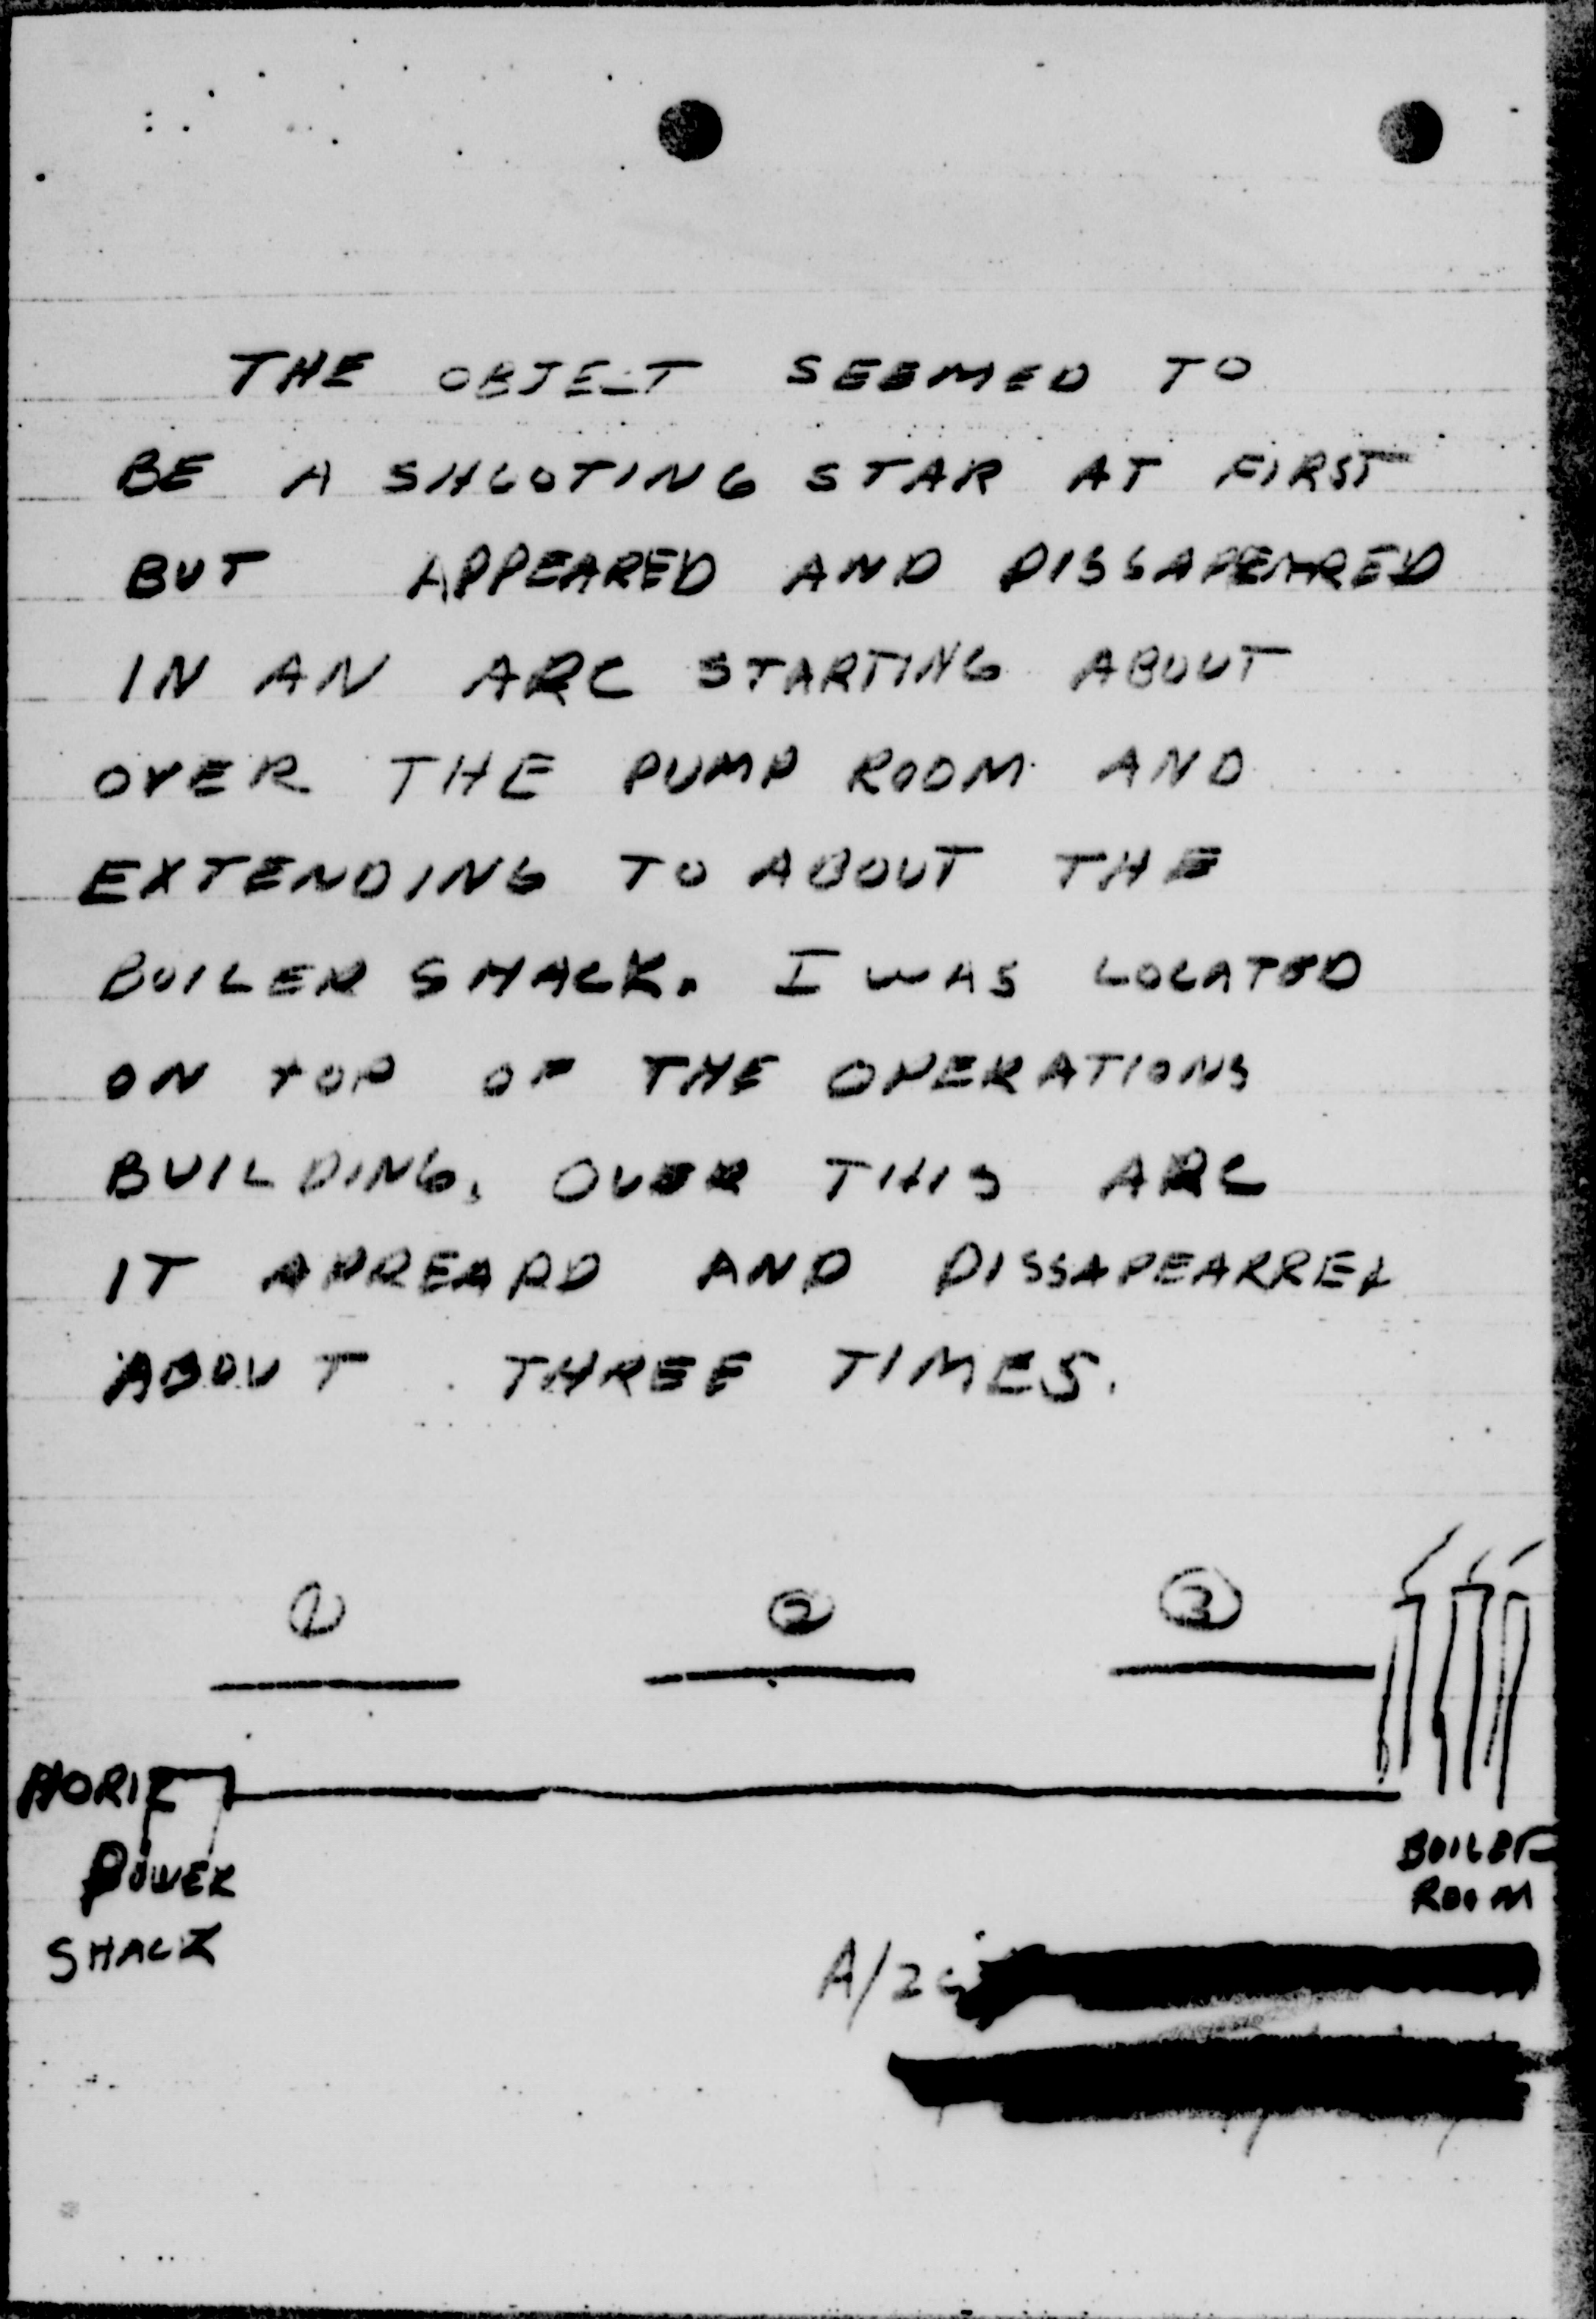 THE OBJECT SEEMED TO
BE A SHOOTING STAR AT FIRST
BUT APPEARED AND DISSAPEARED
IN AN ARC STARTING ABOUT
OVER THE PUMP ROOM AND
EXTENDING TO ABOUT THE
BOILER SHACK. I WAS LOCATED
ON TOP OF THE OPERATIONS
BUILDING. OVER THIS ARC
IT APREARD AND DISSAPEARRED
ABOUT THREE TIMES.
① ② ③
HORIZ
POWER
SHACK
BOILER
ROOM
A/2C